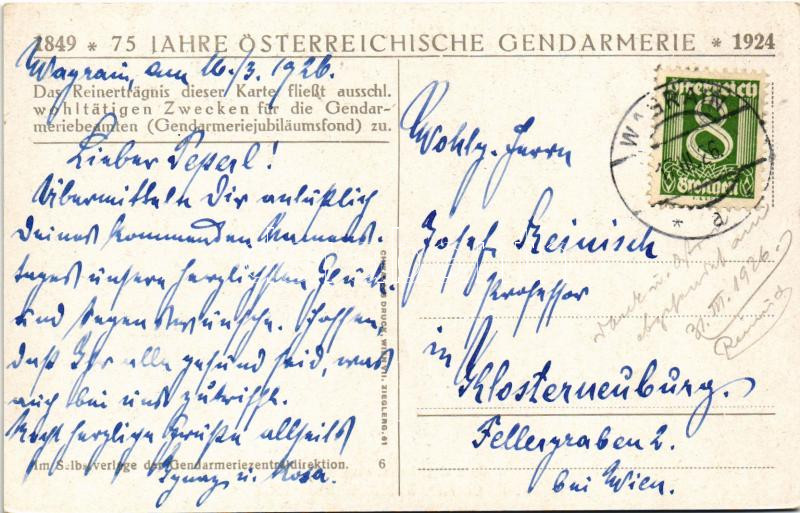 1849 * 75 JAHRE ÖSTERREICHISCHE GENDARMERIE * 1924
Wagrain, am 16./3. 1926.
Das Reinerträgnis dieser Karte fließt ausschl.
wohltätigen Zwecken für die Gendar-
meriebeamten (Gendarmeriejubiläumsfond) zu.
Lieber Peperl!
Übermitteln Dir anläßlich
Deines kommenden Namens-
tages unsere herzlichsten Glück-
und Segenswünsche. Hoffen,
daß Ihr alle gesund seid, was
auch bei uns zutrifft.
Recht herzliche Grüße allseits
Ignaz u. Rosa.
Im Selbstverlage der Gendarmeriezentraldirektion. 6
DRUCK, WIEN VII, ZIEGLERG. 61
Österreich
8
Groschen
WAGRAIN
a
Wohlg. Herrn
Josef Reinisch
Professor
in
Klosterneuburg.
Fellergraben 2.
bei Wien.
Dank u.
abgesendet am
31. III. 1926.